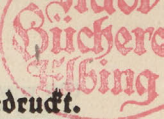 Bücher
Elbing
druckt.